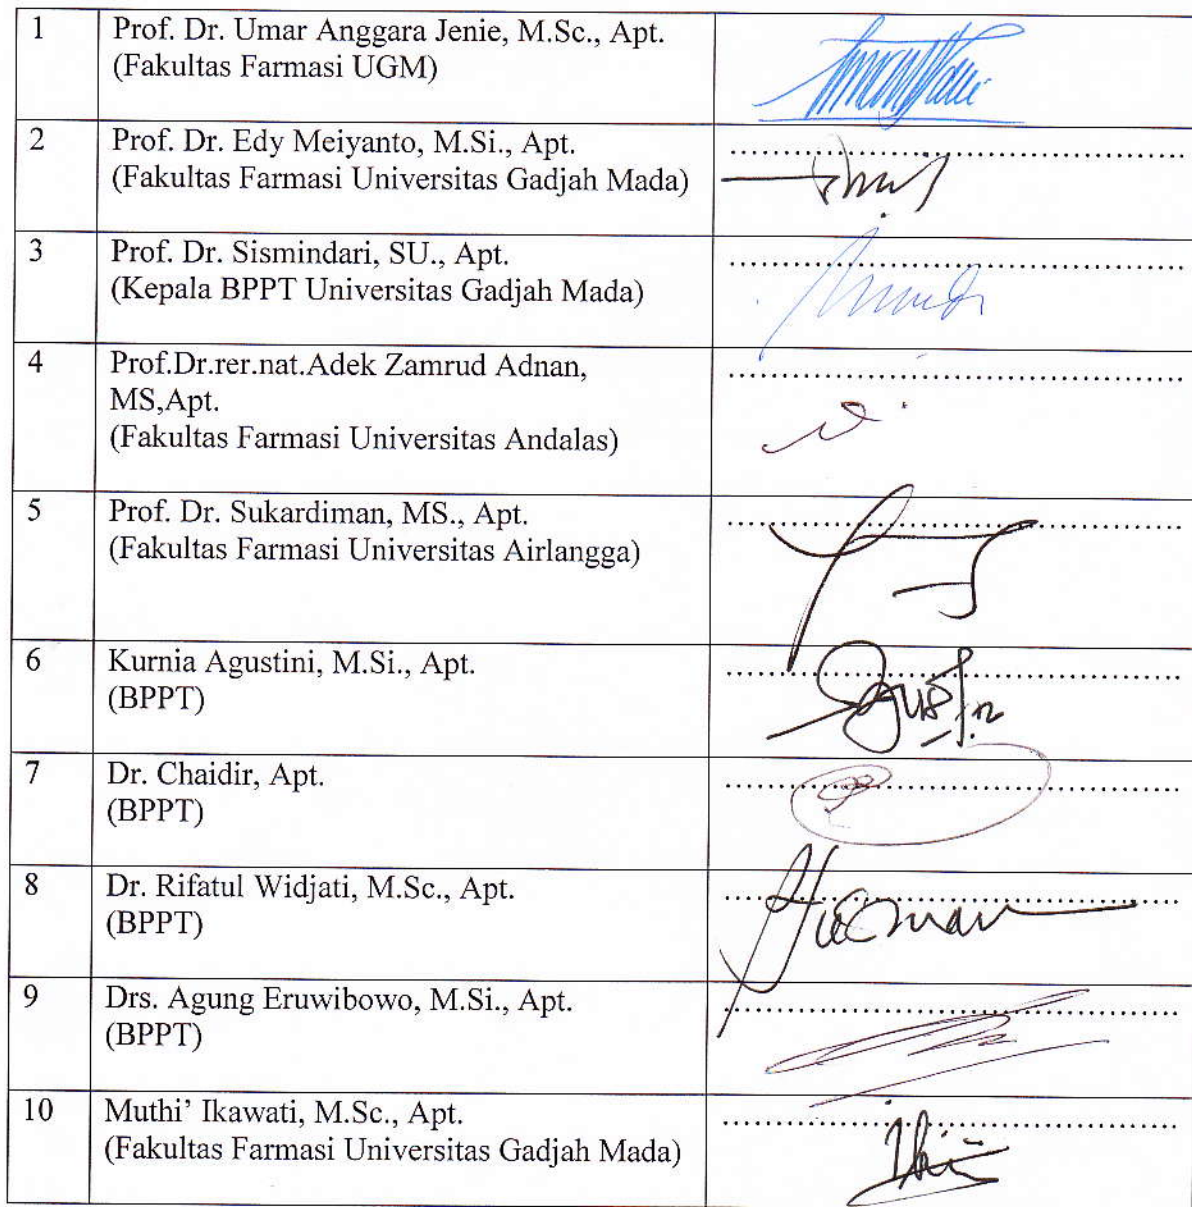 1 Prof. Dr. Umar Anggara Jenie, M.Sc., Apt.
(Fakultas Farmasi UGM)
2 Prof. Dr. Edy Meiyanto, M.Si., Apt.
(Fakultas Farmasi Universitas Gadjah Mada)
3 Prof. Dr. Sismindari, SU., Apt.
(Kepala BPPT Universitas Gadjah Mada)
4 Prof.Dr.rer.nat.Adek Zamrud Adnan,
MS,Apt.
(Fakultas Farmasi Universitas Andalas)
5 Prof. Dr. Sukardiman, MS., Apt.
(Fakultas Farmasi Universitas Airlangga)
6 Kurnia Agustini, M.Si., Apt.
(BPPT)
7 Dr. Chaidir, Apt.
(BPPT)
8 Dr. Rifatul Widjati, M.Sc., Apt.
(BPPT)
9 Drs. Agung Eruwibowo, M.Si., Apt.
(BPPT)
10 Muthi' Ikawati, M.Sc., Apt.
(Fakultas Farmasi Universitas Gadjah Mada)